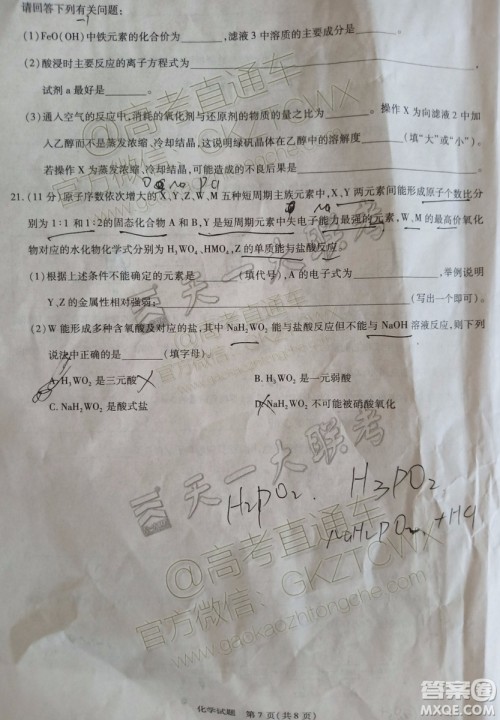 请回答下列有关问题:
(1)FeO(OH)中铁元素的化合价为______,滤液3中溶质的主要成分是______。
(2)酸浸时主要反应的离子方程式为______,
试剂a最好是______。
(3)通入空气的反应中,消耗的氧化剂与还原剂的物质的量之比为______。操作X为向滤液2中加
入乙醇而不是蒸发浓缩、冷却结晶,这说明绿矾晶体在乙醇中的溶解度______(填“大”或“小”)。
若操作X为蒸发浓缩、冷却结晶,可能造成的不良后果是______。
21.(11分)原子序数依次增大的X、Y、Z、W、M五种短周期主族元素中,X、Y两元素间能形成原子个数比分
别为1:1和1:2的固态化合物A和B,Y是短周期元素中失电子能力最强的元素,W、M的最高价氧化
物对应的水化物化学式分别为H₃WO₄、HMO₄,Z的单质能与盐酸反应。
(1)根据上述条件不能确定的元素是______(填代号),A的电子式为______,举例说明
Y、Z的金属性相对强弱:______(写出一个即可)。
(2)W能形成多种含氧酸及对应的盐,其中NaH₂WO₂能与盐酸反应但不能与NaOH溶液反应,则下列
说法中正确的是______(填字母)。
A.H₃WO₂是三元酸
B.H₃WO₂是一元弱酸
C.NaH₂WO₂是酸式盐
D.NaH₂WO₂不可能被硝酸氧化
H₂PO₂. H₃PO₂
NaH₂PO₂ +HCl
天一大联考
@高考直通车
官方微信:GKZTCWX
www.gaokaozhitongche.com
化学试题 第7页(共8页)
答案圈
MXQE.COM